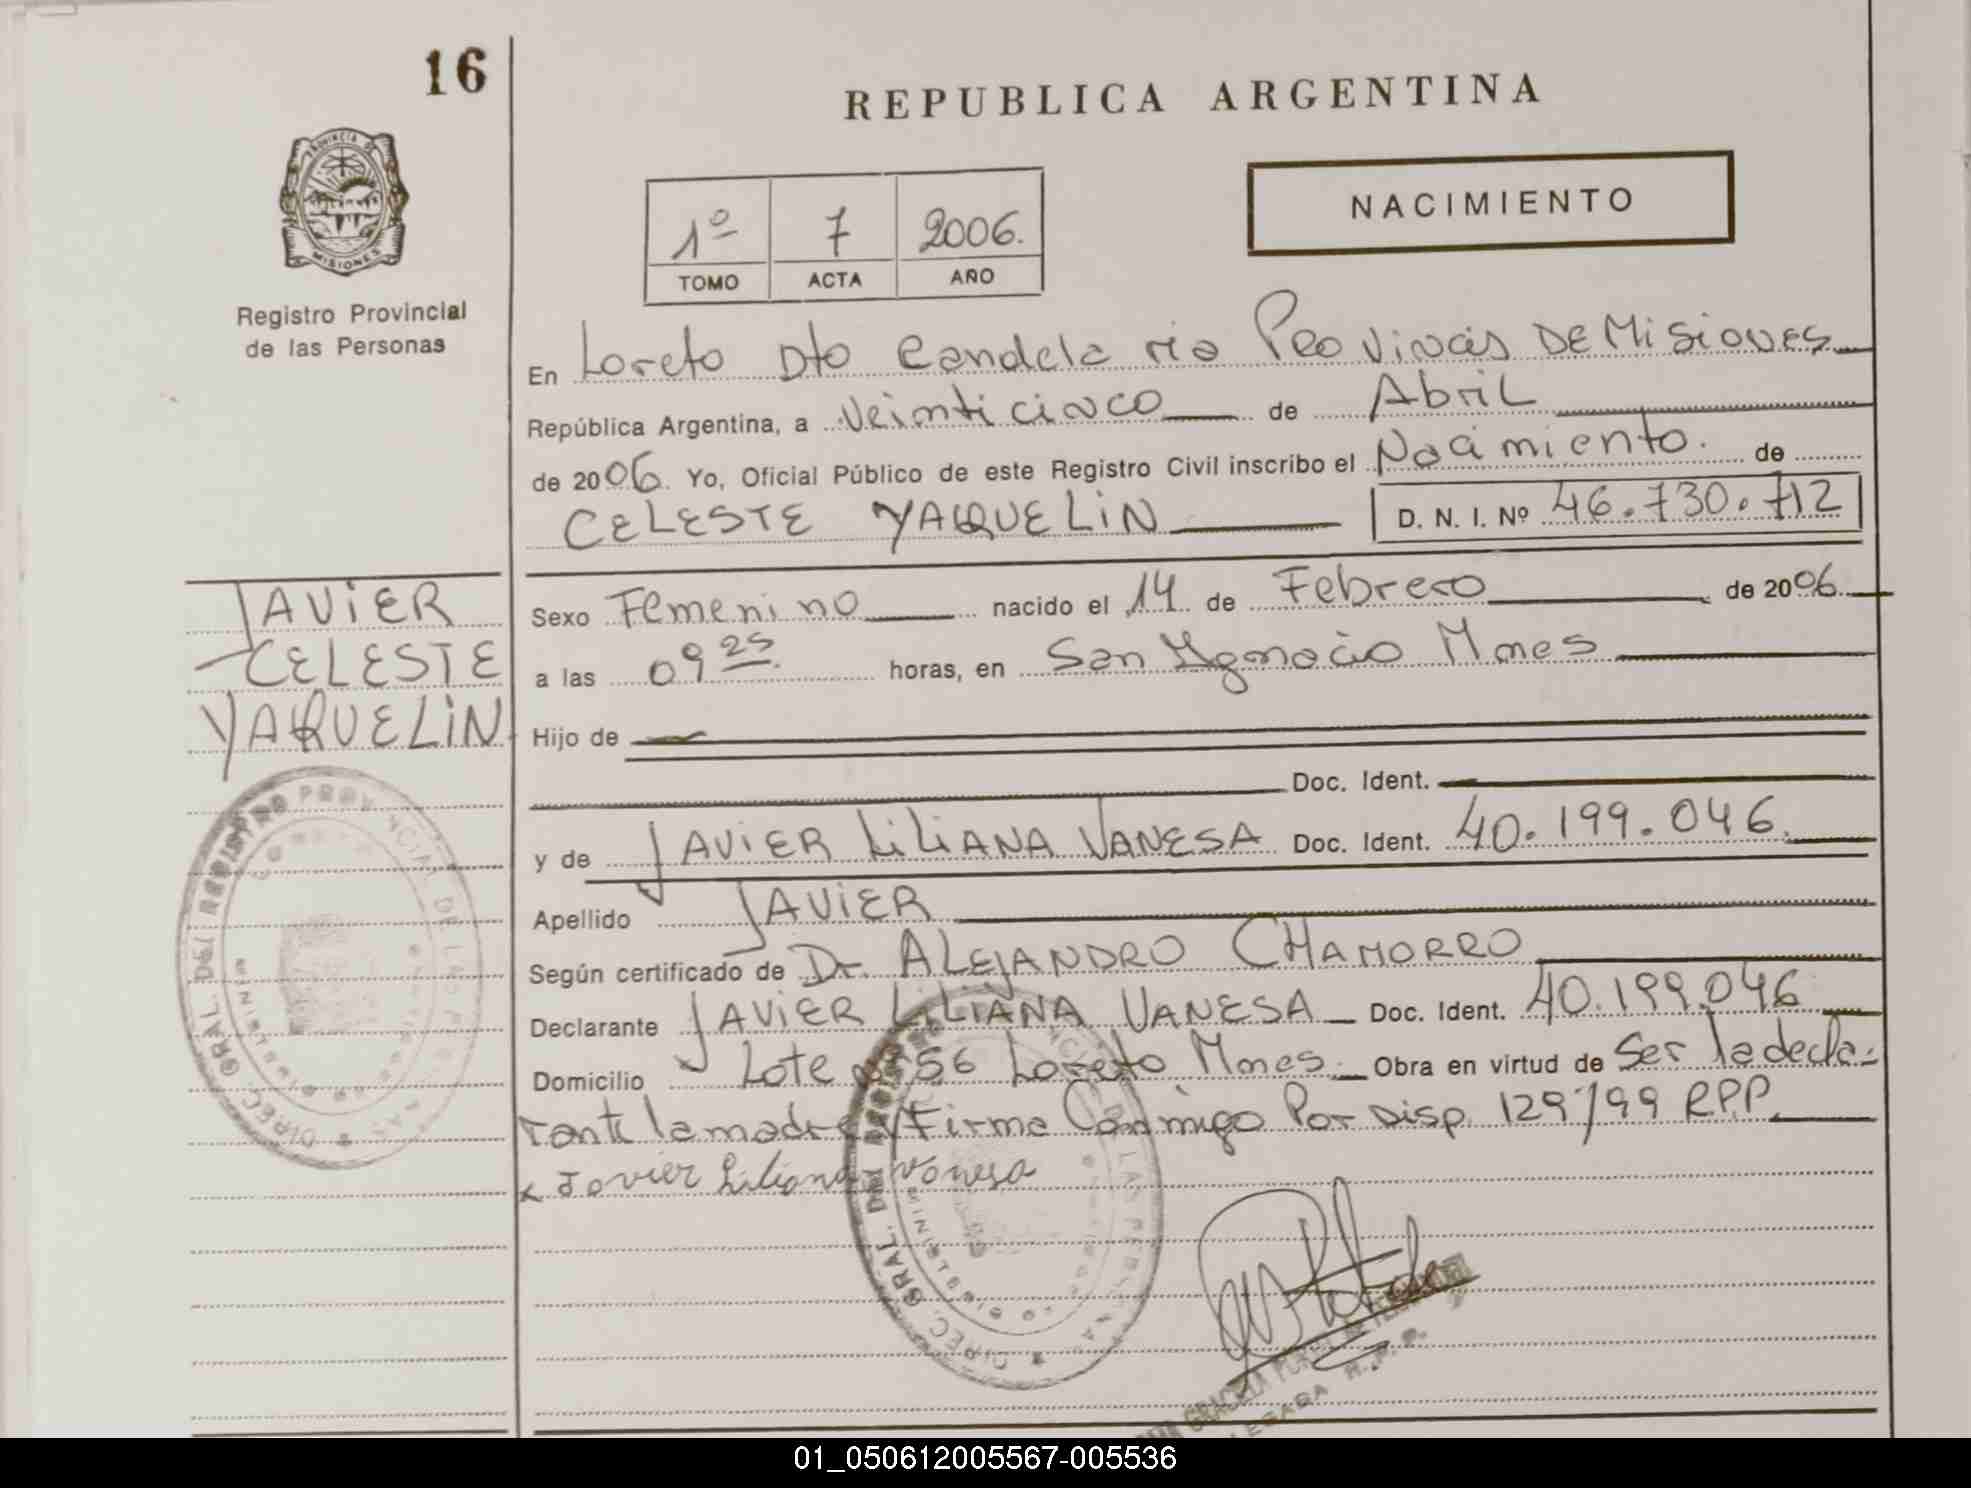 16
REPUBLICA ARGENTINA
PROVINCIA DE
MISIONES
Registro Provincial
de las Personas
1º 7 2006.
TOMO ACTA AÑO
NACIMIENTO
En Loreto Dto Candelaria Provincias DE Misiones
República Argentina, a Veinticinco de Abril
de 2006. Yo, Oficial Público de este Registro Civil inscribo el Nacimiento. de
CELESTE YAQUELIN D. N. I. Nº 46.730.712
JAVIER
CELESTE
YAQUELIN
Sexo Femenino nacido el 14 de Febrero de 2006.
a las 09 25 horas, en San Ygnacio Mnes
Hijo de
Doc. Ident.
y de JAVIER LILIANA VANESA Doc. Ident. 40.199.046.
Apellido JAVIER
Según certificado de Dr. ALEJANDRO CHAMORRO
Declarante JAVIER LILIANA VANESA Doc. Ident. 40.199.046
Domicilio Lote Nº 56 Loreto Mnes. Obra en virtud de Ser la decla-
rante la madre Firma Conmigo Por Disp. 129/99 R.P.P.
x Javier Liliana Vanesa
DIREC. GRAL. DEL REGISTRO PROVINCIAL DE LAS PERSONAS
MINISTERIO DE GOBIERNO
DIREC. GRAL. DEL REGISTRO PROVINCIAL DE LAS PERSONAS
MINISTERIO DE GOBIERNO
GRACIELA
R. P. P.
01_050612005567-005536